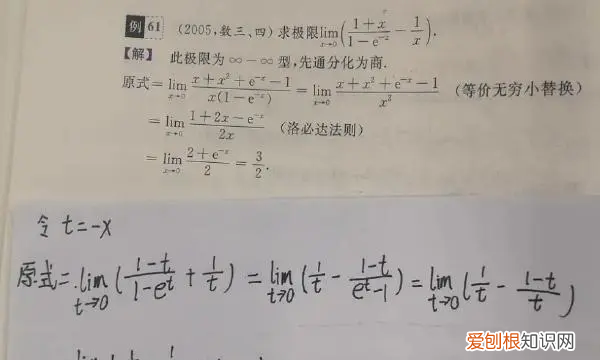 例 61 (2005,数三、四) 求极限lim_{x→0}(\frac{1+x}{1-e^{-x}} - \frac{1}{x}).
【解】 此极限为∞-∞型,先通分化为商.
原式=lim_{x→0}\frac{x+x^2+e^{-x}-1}{x(1-e^{-x})}=lim_{x→0}\frac{x+x^2+e^{-x}-1}{x^2} (等价无穷小替换)
=lim_{x→0}\frac{1+2x-e^{-x}}{2x} (洛必达法则)
=lim_{x→0}\frac{2+e^{-x}}{2}=\frac{3}{2}.
令 t=-x
原式=lim_{t→0}(\frac{1-t}{1-e^t}+\frac{1}{t})=lim_{t→0}(\frac{1}{t}-\frac{1-t}{e^t-1})=lim_{t→0}(\frac{1}{t}-\frac{1-t}{t})
爱刨根知识网